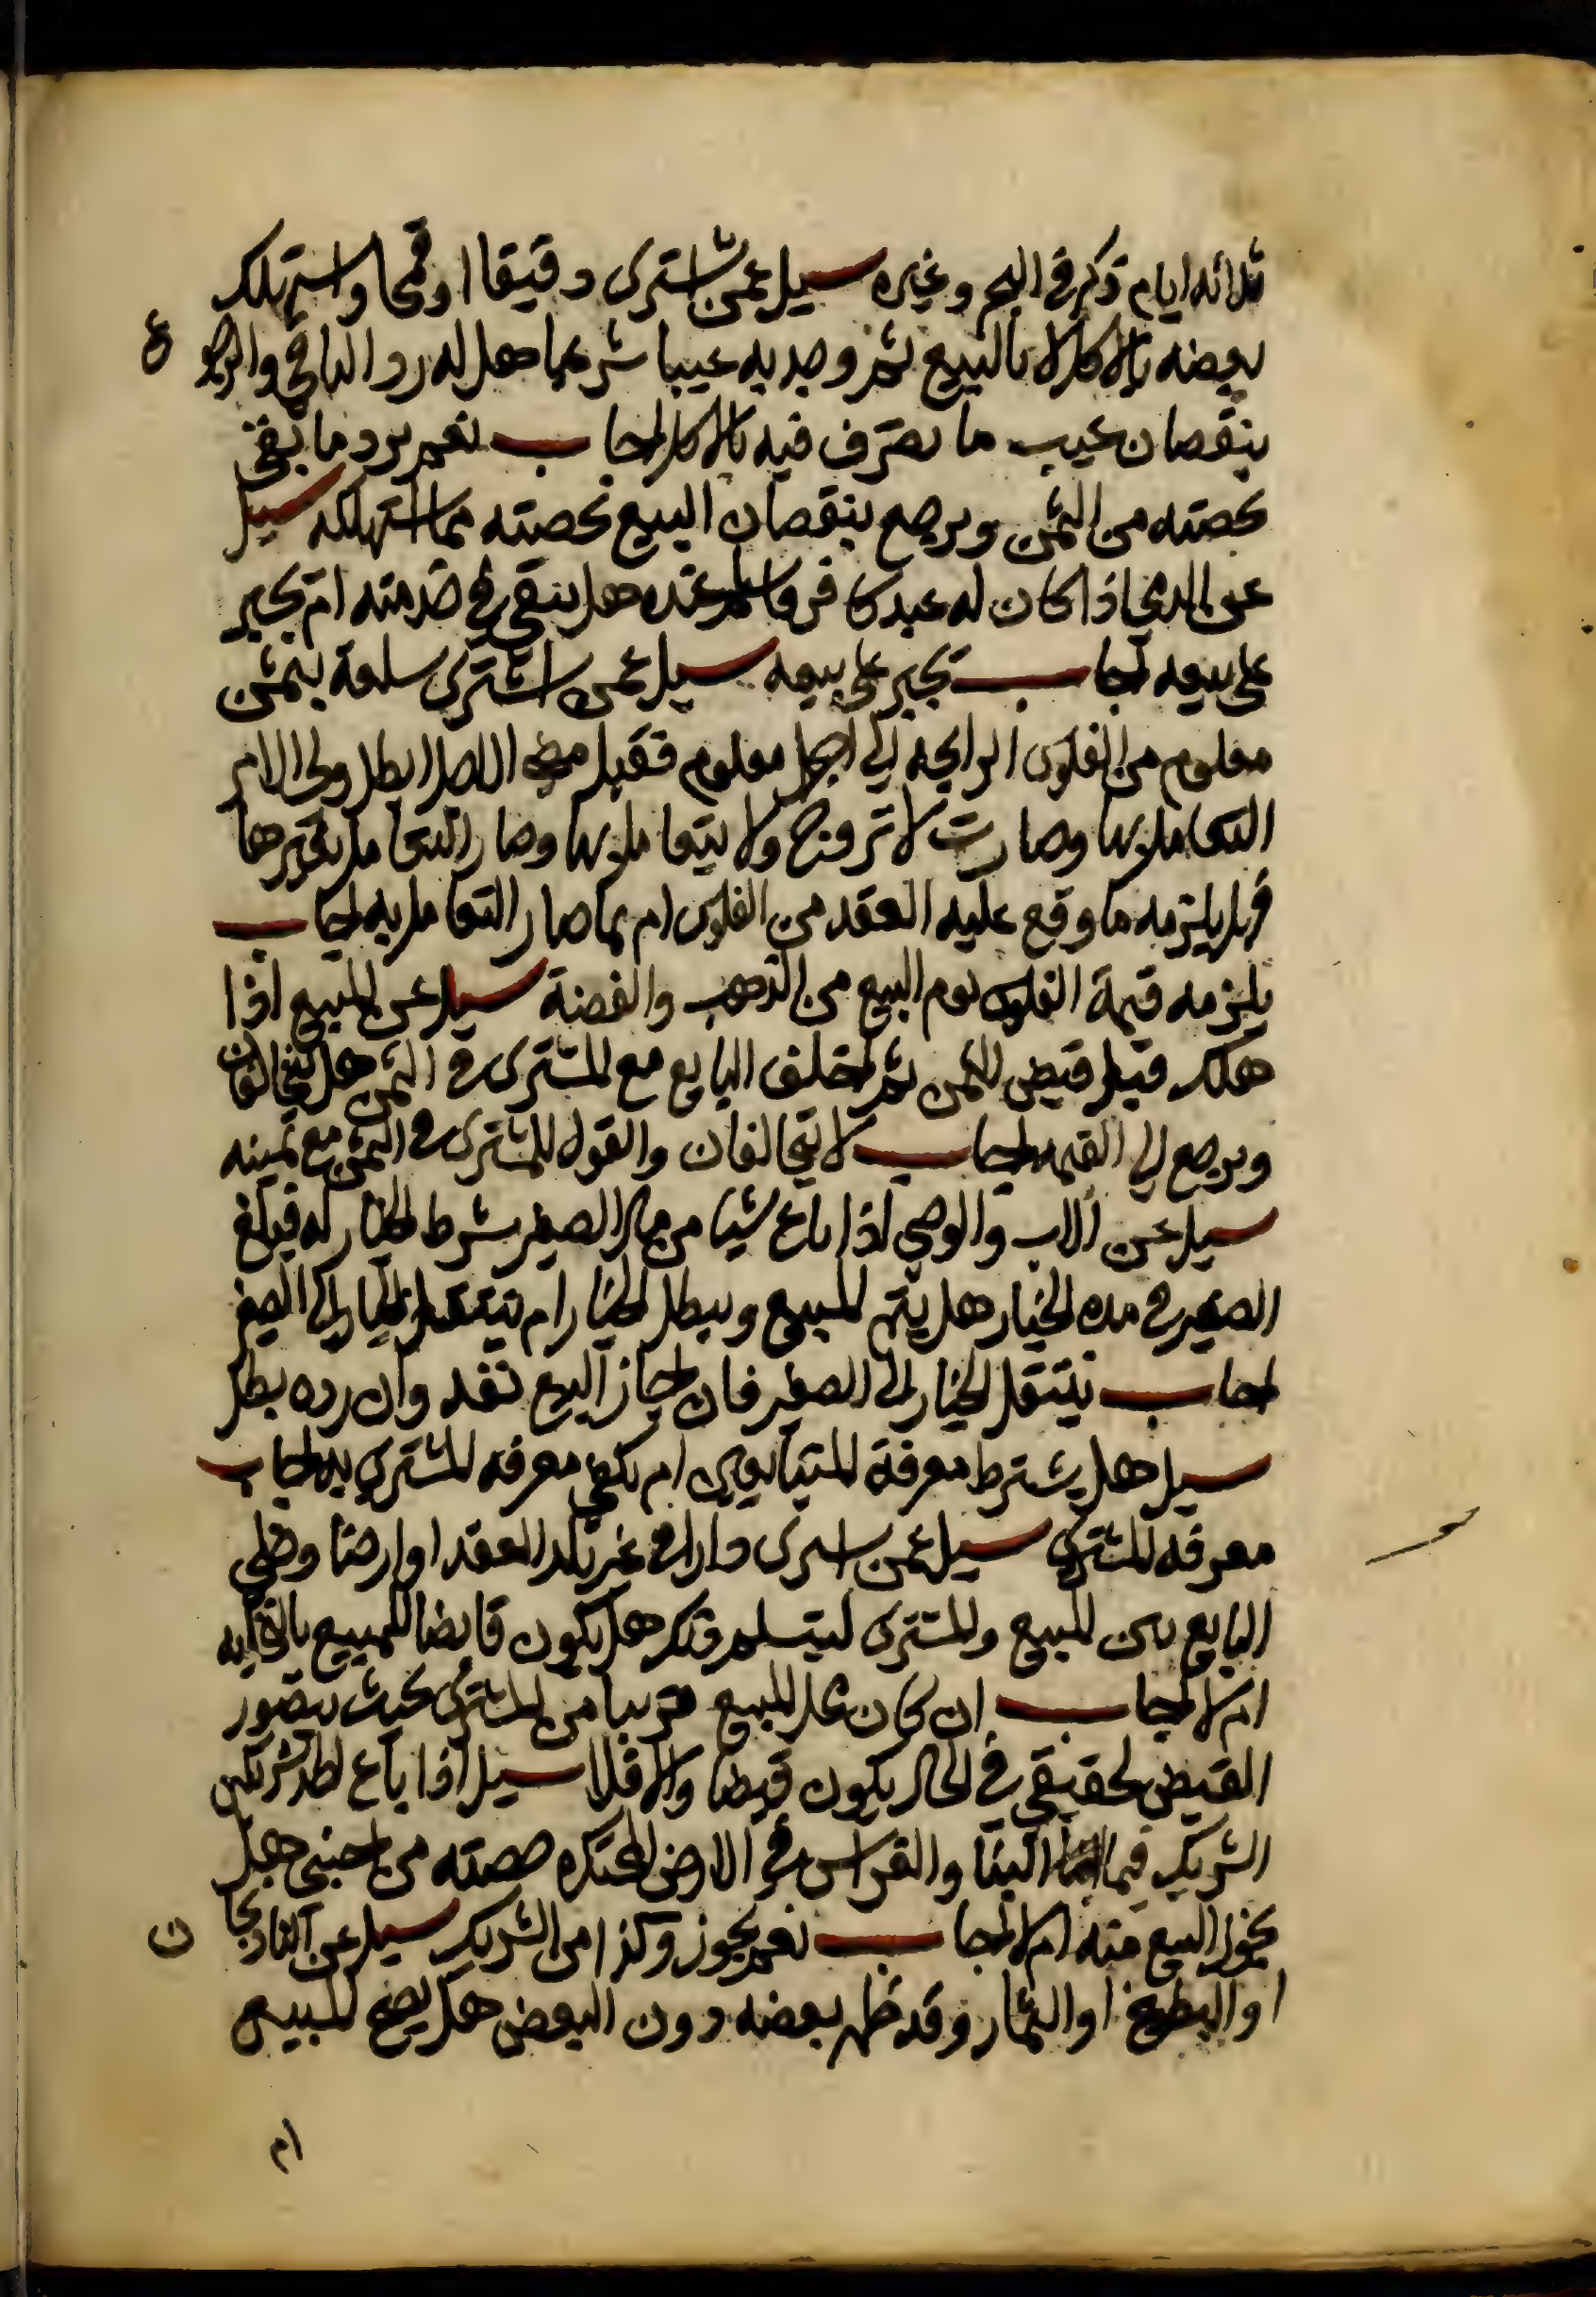 ثلاثه ايام ذكره في البحر وغيره سيل عمن اشترى دقيقا او قمحا واستهلك
بعضه بالاكل لا بالبيع ثم وجد به عيبا شرعيا هل له رد الباقي والرجوع
بنقصان عيب ما تصرف فيه بالاكل اجاب نعم يرد ما بقى
بحصته من الثمن ويرجع بنقصان البيع بحصته مما استهلكه سيل
عن الذمي اذا كان له عبد كافر واسلم عنده هل يبقى في خدمته ام يجبر
على بيعه اجاب يجبر على بيعه سيل عمن اشترى سلعة بثمن
معلوم من الفلوس الرايجه الي اجل معلوم فقبل مضي الاجل ابطل ولى الامر
التعامل بها وصارت لا تروج ولا يتعامل بها وصار التعامل بغيرها
فهل يلزمه ما وقع عليه العقد من الفلوس ام بما صار التعامل به اجاب
يلزمه قيمة الفلوس يوم البيع من الذهب والفضة سيل عن المبيع اذا
هلك قبل قبض الثمن ثم اختلف البايع مع المشترى في الثمن هل يتحالفان
ويرجع الي القيمه اجاب لا يتحالفان والقول للمشترى في الثمن مع يمينه
سيل عن الاب والوصي اذا باع شيا من مال الصغير بشرط الخيار له فبلغ
الصغير في مدة الخيار هل يتم المبيع ويبطل الخيار ام ينتقل الخيار الى الصغير
اجاب ينتقل الخيار الى الصغير فان اجاز البيع نفد وان رده بطل
سيل هل يشترط معرفة المتبايعين ام تكفي معرفه المشتري به اجاب
معرفه المشتري سيل عمن اسرى دارا في غير بلد العقد او ارضا وخلى
البايع بين المبيع والمشترى ليتسلم وذكر هل يكون قابضا للمبيع بالتخليه
ام لا اجاب ان كان محل المبيع قريبا من المشترى بحيث يتصور
القبض الحقيقي في الحال يكون قبضا والا فلا سيل اذا باع احد شريكين
الشريك فيما البنا والغراس في الارض المحتكره حصته من اجنبى هل
يجوز البيع منه ام لا اجاب نعم يجوز وكذا من الشريك سيل عن الباذنجان
او البطيخ او الثمار وقد ظهر بعضه دون البعض هل يصح المبيع
ام